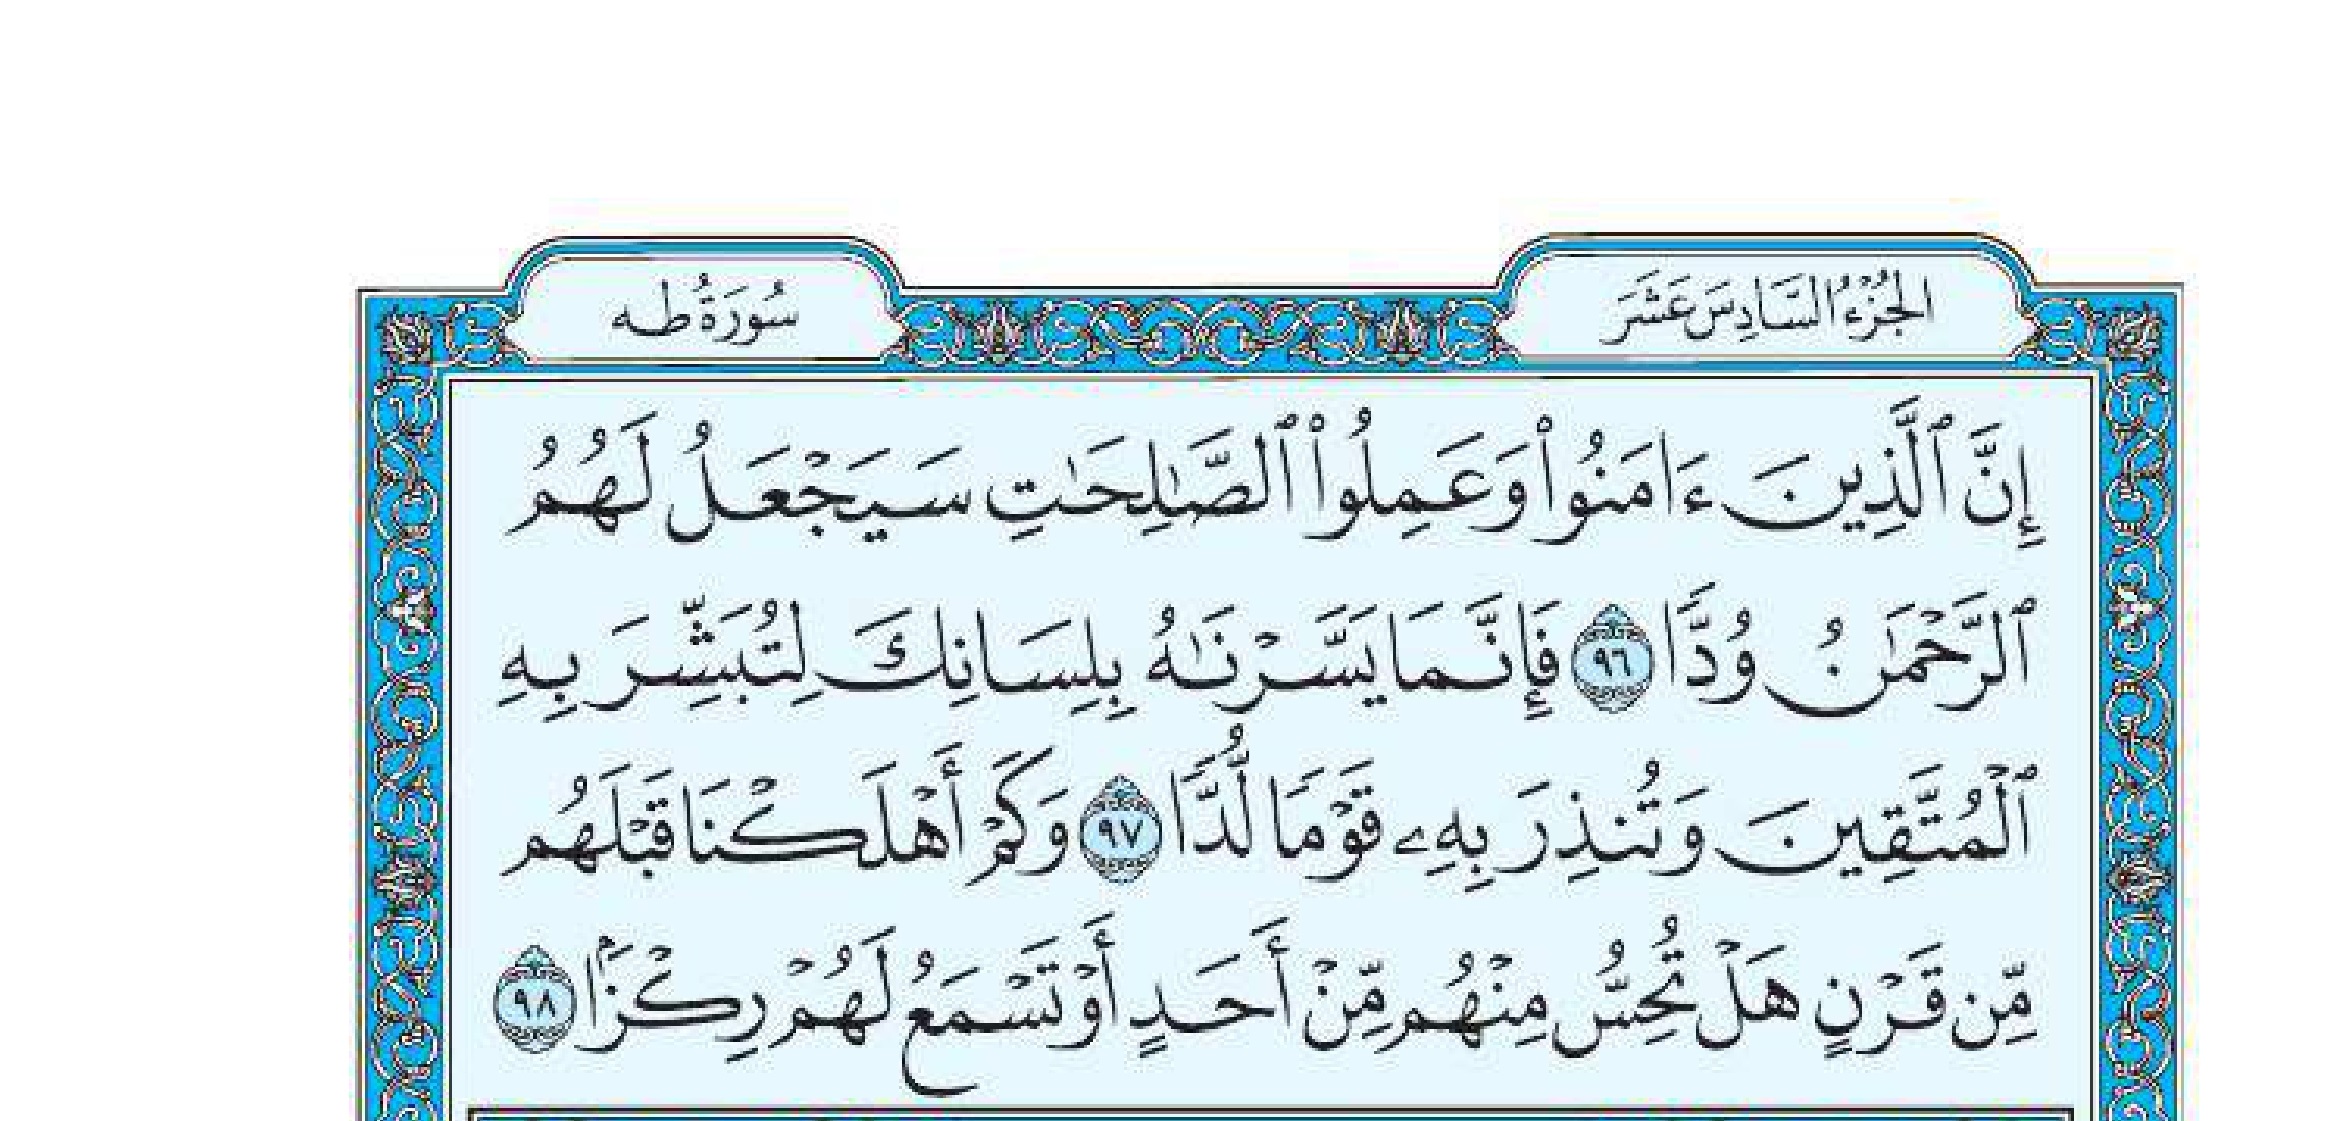 الجُزْءُ السَّادِسَ عَشَرَ
سُورَةُ طه
إِنَّ ٱلَّذِينَ ءَامَنُوا۟ وَعَمِلُوا۟ ٱلصَّـٰلِحَـٰتِ سَيَجْعَلُ لَهُمُ
ٱلرَّحْمَـٰنُ وُدًّا ٩٦ فَإِنَّمَا يَسَّرْنَـٰهُ بِلِسَانِكَ لِتُبَشِّرَ بِهِ
ٱلْمُتَّقِينَ وَتُنذِرَ بِهِۦ قَوْمًا لُّدًّا ٩٧ وَكَمْ أَهْلَكْنَا قَبْلَهُم
مِّن قَرْنٍ هَلْ تُحِسُّ مِنْهُم مِّنْ أَحَدٍ أَوْ تَسْمَعُ لَهُمْ رِكْزًۢا ٩٨